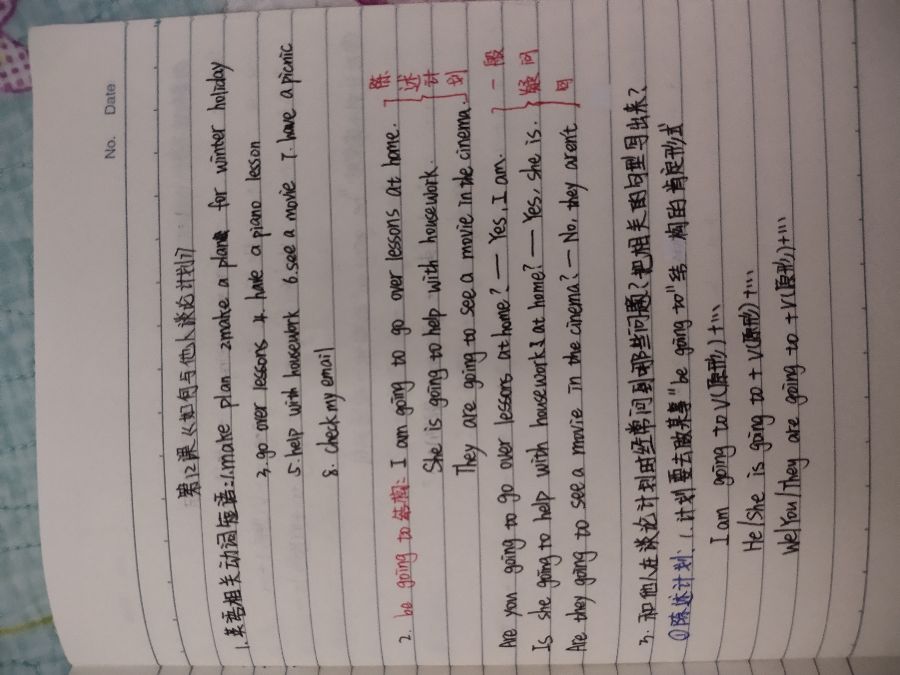 No.    Date
第12课《如何与他人谈论计划》
1.英语相关动词短语:1.make plan 2.make a plan for winter holiday
3.go over lessons 4. have a piano lesson
5.help with housework 6.see a movie 7.have a picnic
8.check my email
2. be going to 结构: I am going to go over lessons at home.
She is going to help with housework.
They are going to see a movie in the cinema.
陈述计划
Are you going to go over lessons at home? — Yes, I am.
Is she going to help with housework at home? — Yes, she is.
Are they going to see a movie in the cinema? — No, they aren't
一般疑问句
3. 和他人在谈论计划时经常问到哪些问题?把相关的句型写出来?
①陈述计划. 1.计划要去做某事"be going to"结构的肯定形式
I am going to V(原形)+...
He/She is going to + V(原形)+...
We/You/They are going to + V(原形)+...